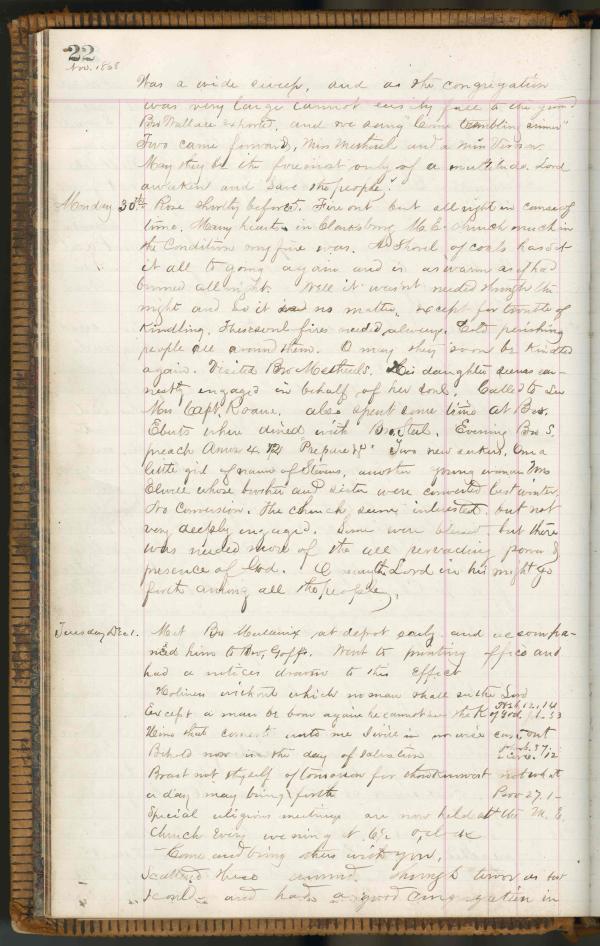 22
Nov. 1868
Was a wide sweep, and as the congregation
was very large cannot easily fall to the ground
Bro Wallace exhorted, and we sang "Come trembling sinner"
Two came forward, Miss and a Miss
May they be the foremost only of a multitude. Lord
awaken and save the people.
Monday 30th Rose shortly before 7. Fire out but all right in course of
time. Many hearts in Clarksburg M. E. church much in
the Condition my fire was. A shovel of coals has set
it all to going again and is as warm as if had
burned all night. Well it wasn't needed through the
night and so it is no matter, except for trouble of
Kindling. These soul fires needed always. Cold perishing
people all around them. O may they soon be kindled
again. Visited Bro His daughter seems ear-
nestly engaged in behalf of her soul. Called to see
Mrs Capt. Roane, also spent some time at Bro.
Eberts where dined with Evening Bro S.
preach Amos 4. 12 "Prepare &c" Two new seekers. One a
little girl of name of Stevens, another young woman Miss
Elwell whose brother and sister were converted last winter.
No conversion. The church seems interested but not
very deeply engaged. Some were blessed but there
was needed more of the all pervading power &
presence of God. O may the Lord in his might go
forth among all the people.
Tuesday Dec 1. Met Bro at depot early and accompa-
nied him to Bro. Goffs. Went to printing office and
had a notices drawn to this effect
Holiness without which no man shall see the Lord
Heb. 12.14
Except a man be born again he cannot see the K of God. Jn. 3.3
Him that cometh unto me I will in no wise cast out
Jno. 6.37
Behold now is the day of salvation 2 Cor. 6.2
Boast not thyself of tomorrow for thou knowest not what
a day may bring forth Prov 27.1
Special religious meetings are now held at the M. E.
Church Every evening at 6½ o'clock
Come and bring others with you.
Scattered these around. Through
and had a good congregation in